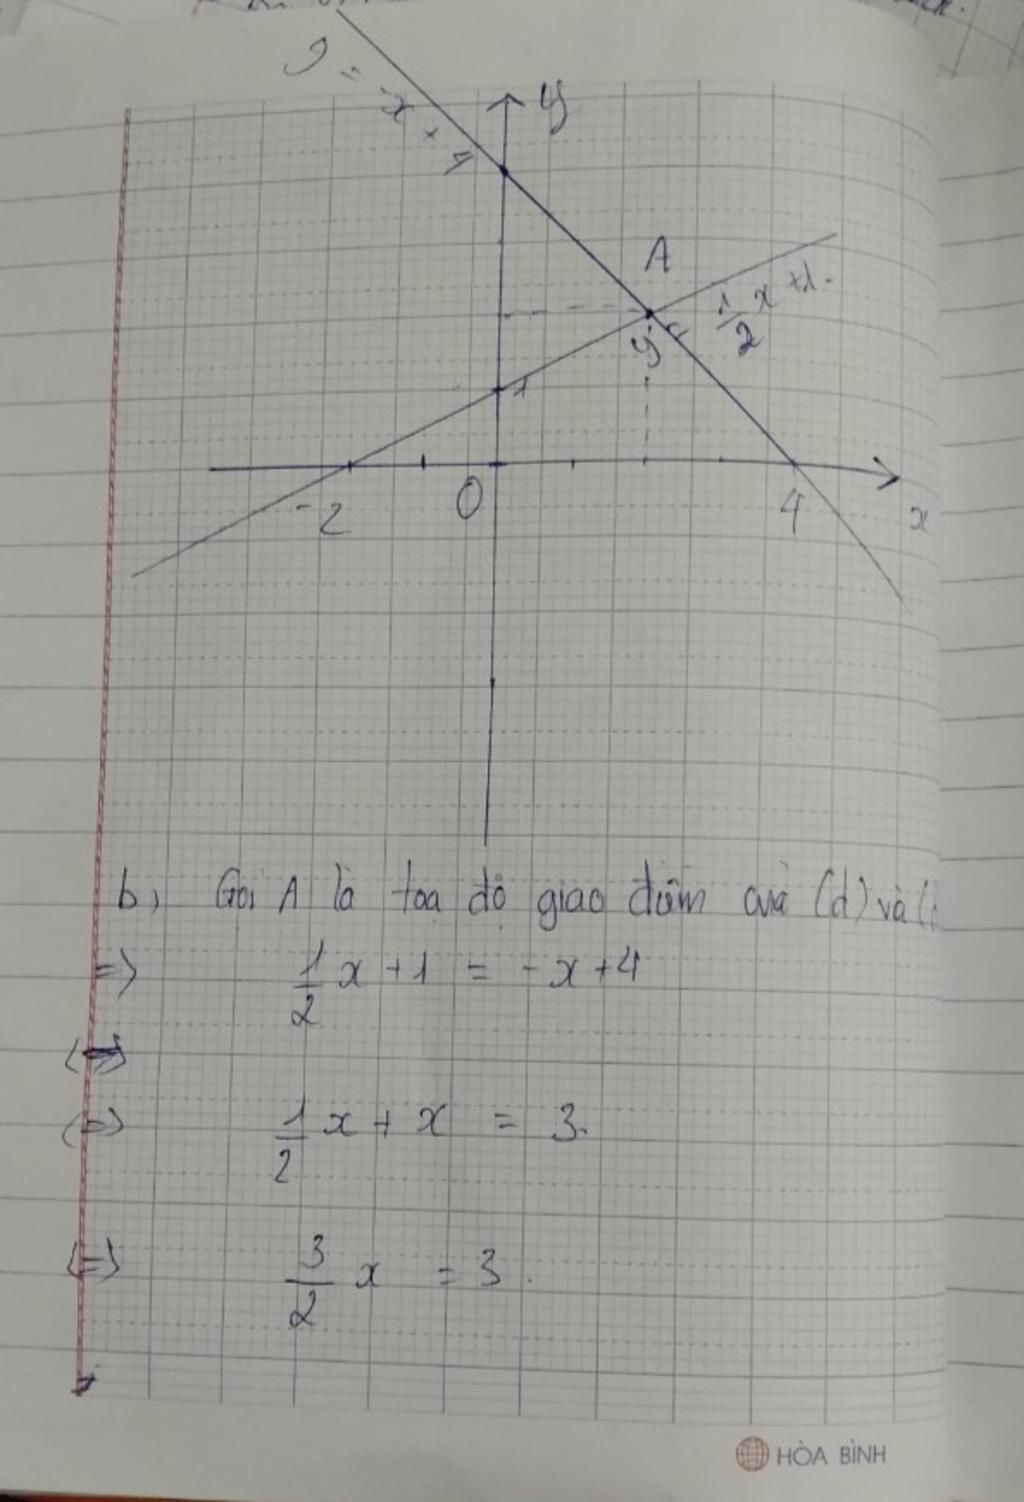 y = -x + 4
y
A
y = 1/2 x + 1
1
-2
O
4
x
b, Gọi A là toạ độ giao điểm của (d) và (
=> 1/2 x + 1 = -x + 4
<=>
<=> 1/2 x + x = 3.
<=> 3/2 x = 3.
HÒA BÌNH